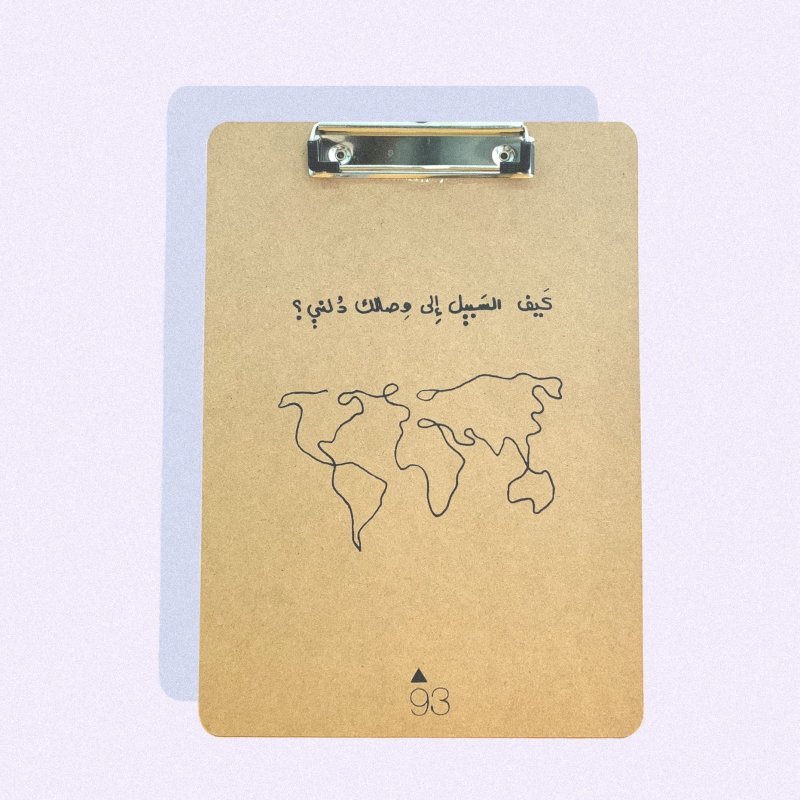 كَيف السَبيل إِلى وِصالك دُلني؟
93